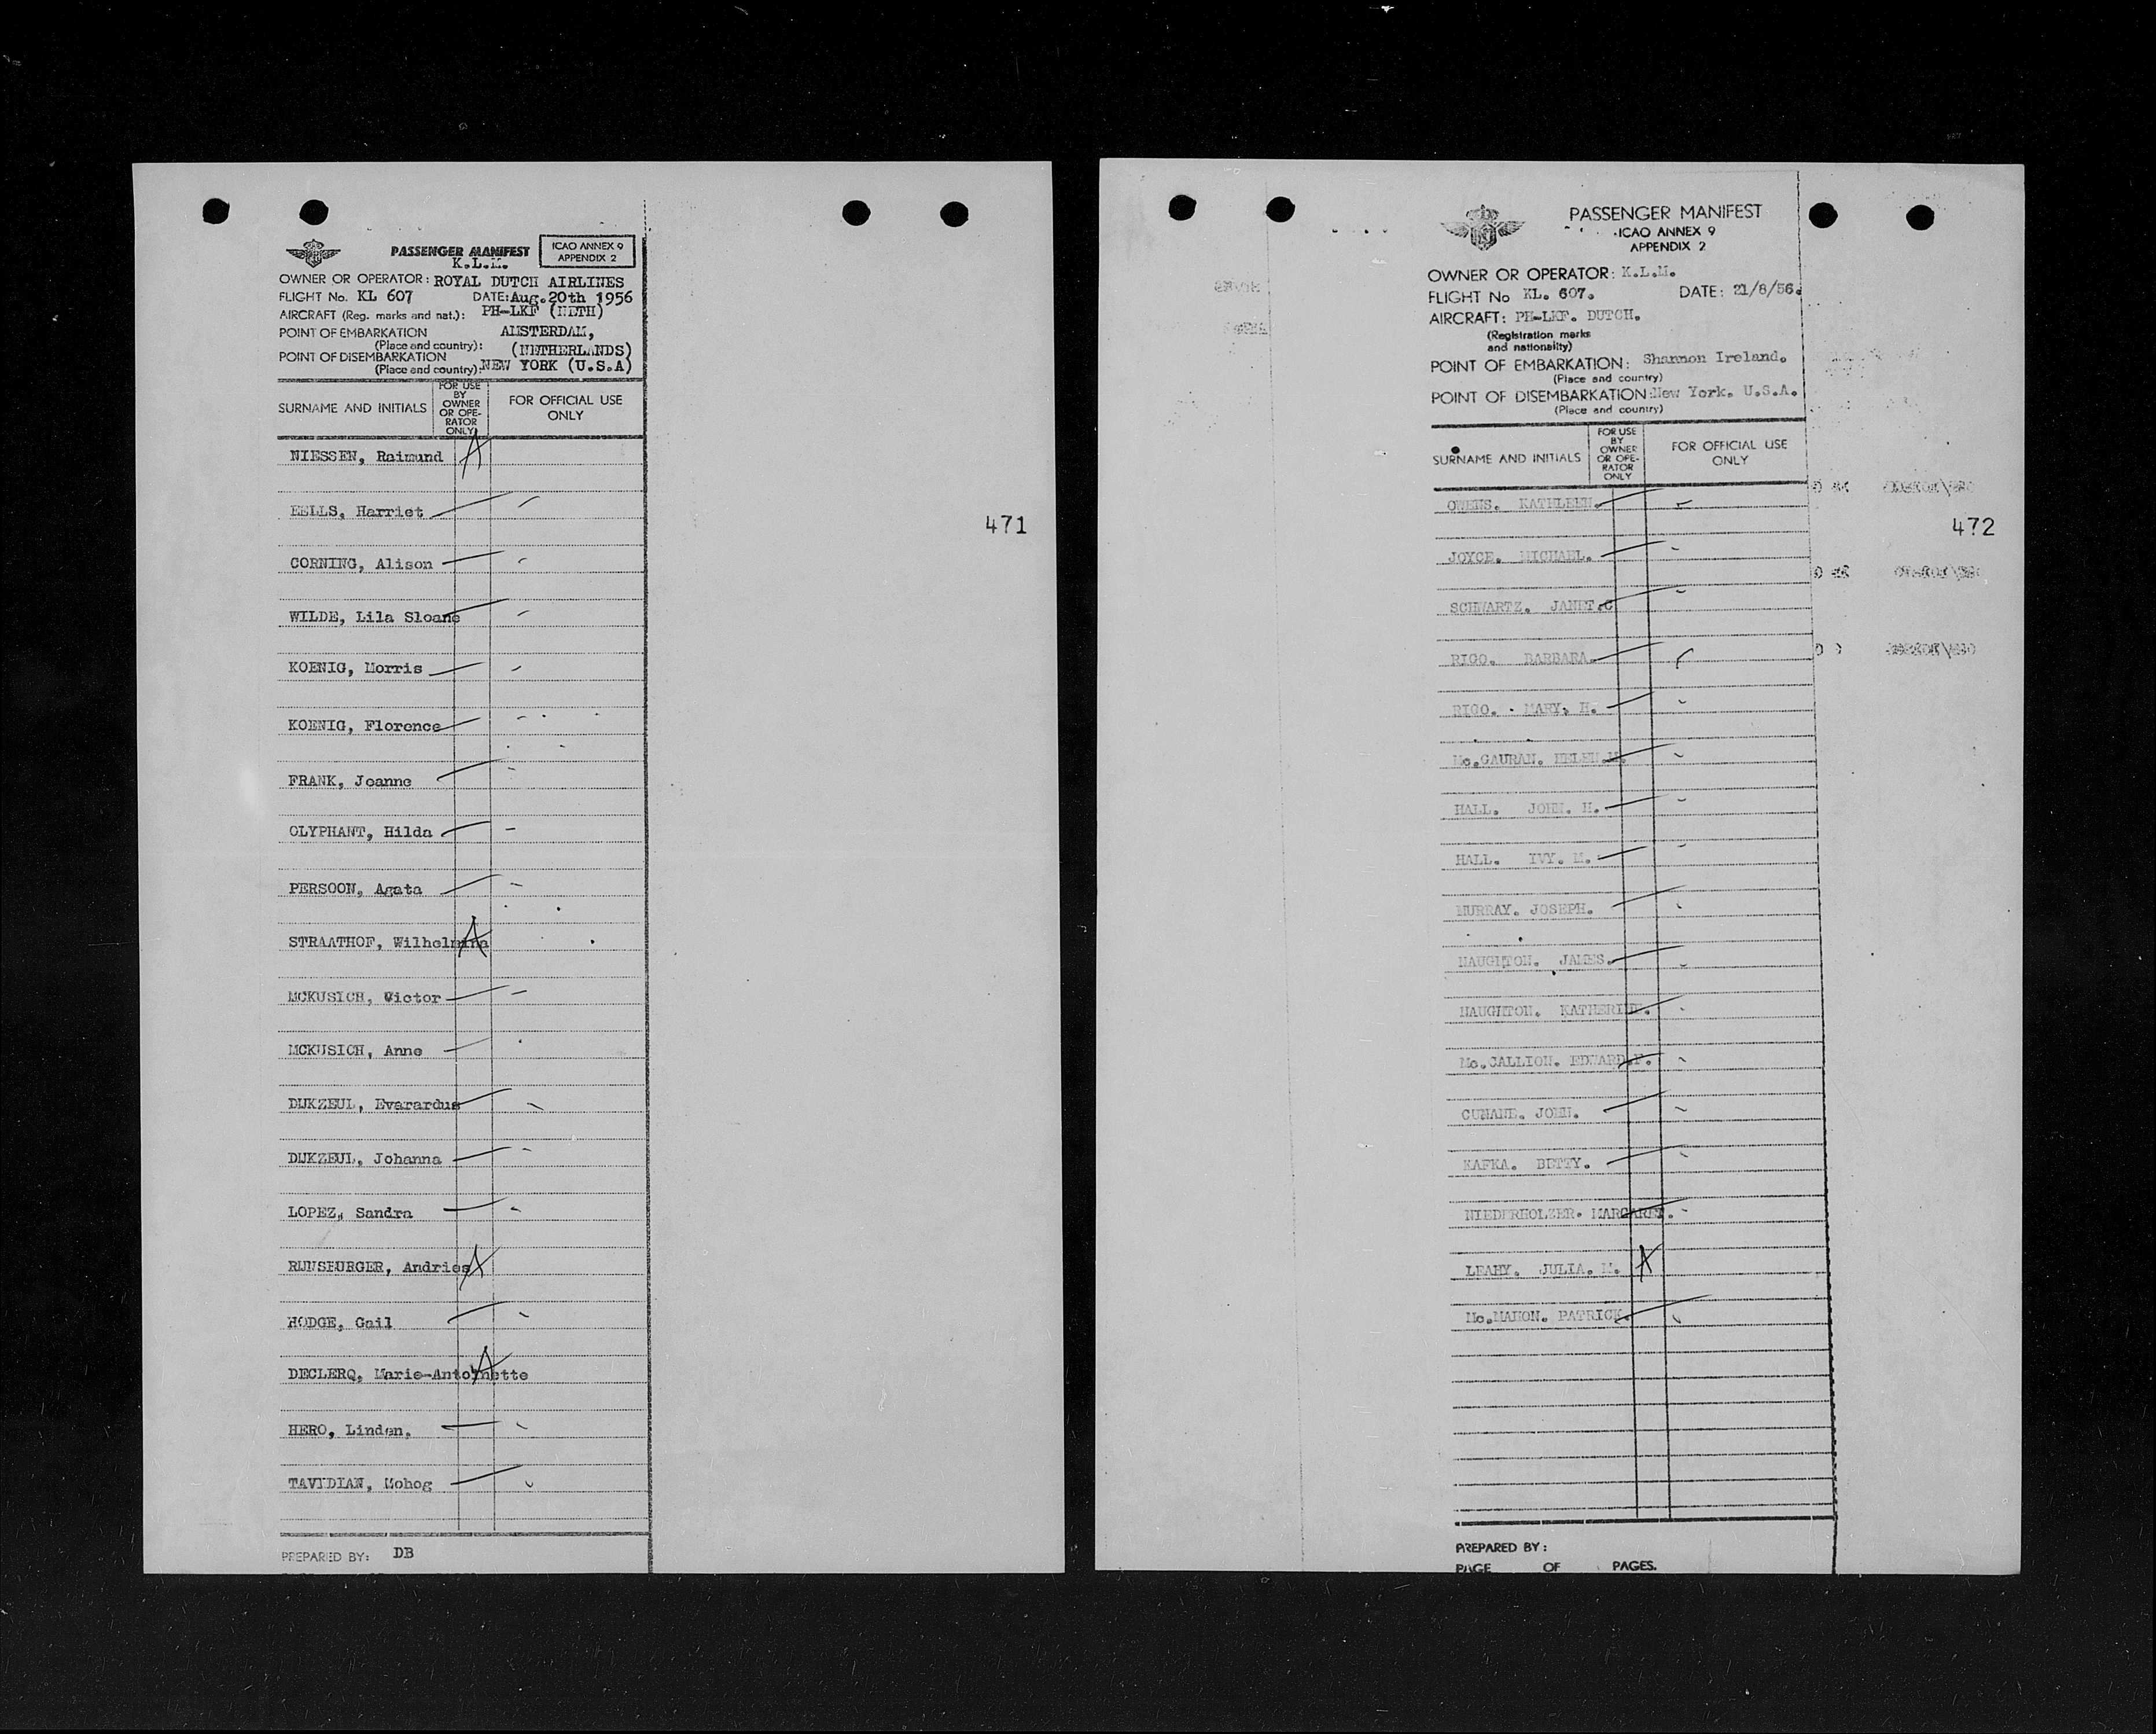 PASSENGER MANIFEST
ICAO ANNEX 9
APPENDIX 2
K.L.M.
OWNER OR OPERATOR: ROYAL DUTCH AIRLINES
FLIGHT No. KL 607 DATE: Aug. 20th 1956
AIRCRAFT (Reg. marks and nat.): PH-LKF (NETH)
POINT OF EMBARKATION AMSTERDAM,
(Place and country): (NETHERLANDS)
POINT OF DISEMBARKATION
(Place and country): NEW YORK (U.S.A)
SURNAME AND INITIALS
FOR USE
BY
OWNER
OR OPE-
RATOR
ONLY
FOR OFFICIAL USE
ONLY
NIESSEN, Raimund A
EELLS, Harriet
471
CORNING, Alison
WILDE, Lila Sloane
KOENIG, Morris
KOENIG, Florence
FRANK, Joanne
OLYPHANT, Hilda
PERSOON, Agata
STRAATHOF, Wilhelmina A
MCKUSICH, Victor
MCKUSICH, Anne
DIJKZEUL, Evarardus
DIJKZEUL, Johanna
LOPEZ, Sandra
RIJNSBURGER, Andries A
HODGE, Gail
DECLERQ, Marie-Antoinette A
HERO, Linden,
TAVIDIAN, Mohog
PREPARED BY: DB
PASSENGER MANIFEST
ICAO ANNEX 9
APPENDIX 2
OWNER OR OPERATOR: K.L.M.
FLIGHT No KL. 607. DATE: 21/8/56.
AIRCRAFT: PH-LKF. DUTCH.
(Registration marks
and nationality)
POINT OF EMBARKATION: Shannon Ireland.
(Place and country)
POINT OF DISEMBARKATION: New York. U.S.A.
(Place and country)
SURNAME AND INITIALS
FOR USE
BY
OWNER
OR OPE-
RATOR
ONLY
FOR OFFICIAL USE
ONLY
OWENS. KATHLEEN.
472
JOYCE. MICHAEL.
SCHWARTZ. JANET.C
RIGO. BARBARA.
RIGO. MARY. H.
Mc.GAURAN. HELEN.M.
HALL. JOHN. H.
HALL. IVY. M.
MURRAY. JOSEPH.
NAUGHTON. JAMES.
NAUGHTON. KATHERINE.
Mc.CALLION. EDWARD.F.
CUNANE. JOHN.
KAFKA. BETTY.
NIEDERHOLZER. MARGARET.
LEAHY. JULIA. M. A
Mc.MAHON. PATRICK.
PREPARED BY:
PAGE OF PAGES.